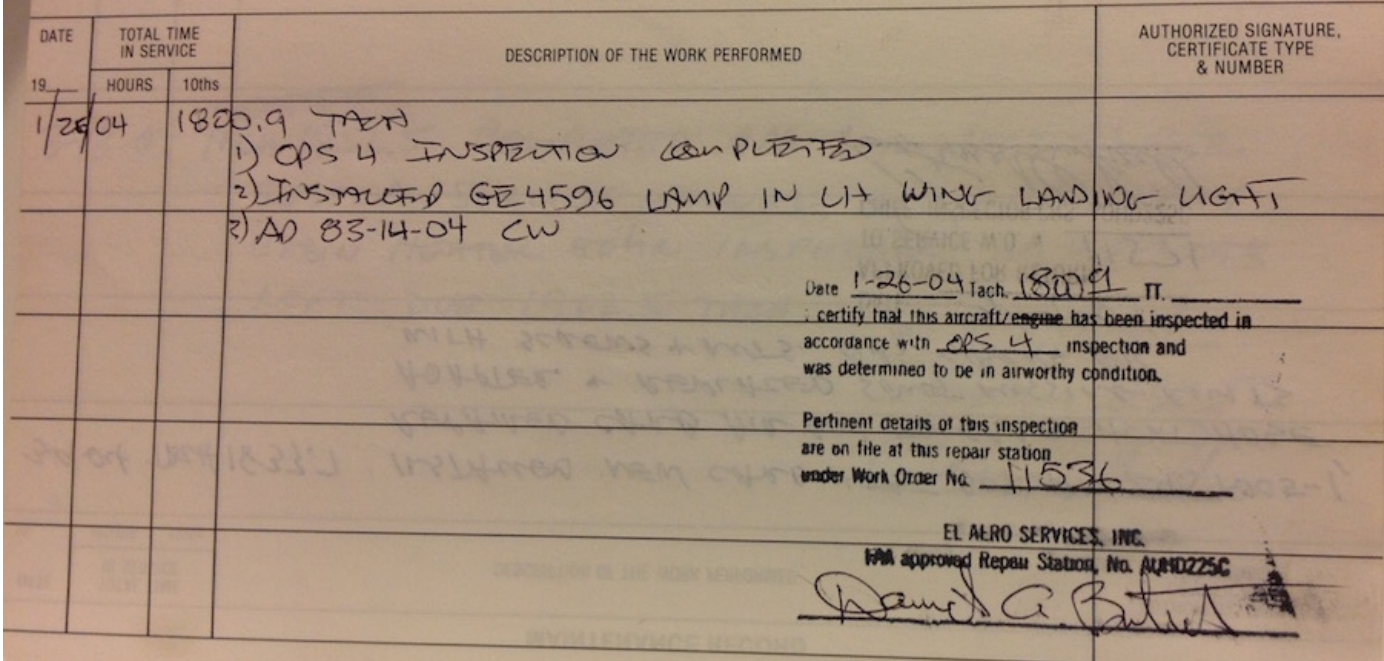 DATE
TOTAL TIME
IN SERVICE
DESCRIPTION OF THE WORK PERFORMED
AUTHORIZED SIGNATURE,
CERTIFICATE TYPE
& NUMBER
19
HOURS
10ths
1/26/04 1820.9 TACH
1) OPS 4 INSPECTION COMPLETED
2) INSTALLED GE4596 LAMP IN LH WING LANDING LIGHT
3) AD 83-14-04 CW
Date 1-26-04 Tach. TT.
I certify that this aircraft/engine has been inspected in
accordance with OPS 4 inspection and
was determined to be in airworthy condition.
Pertinent details of this inspection
are on file at this repair station
under Work Order No. 11536
EL AERO SERVICES, INC.
FAA approved Repair Station, No.
MAINTENANCE RECORD